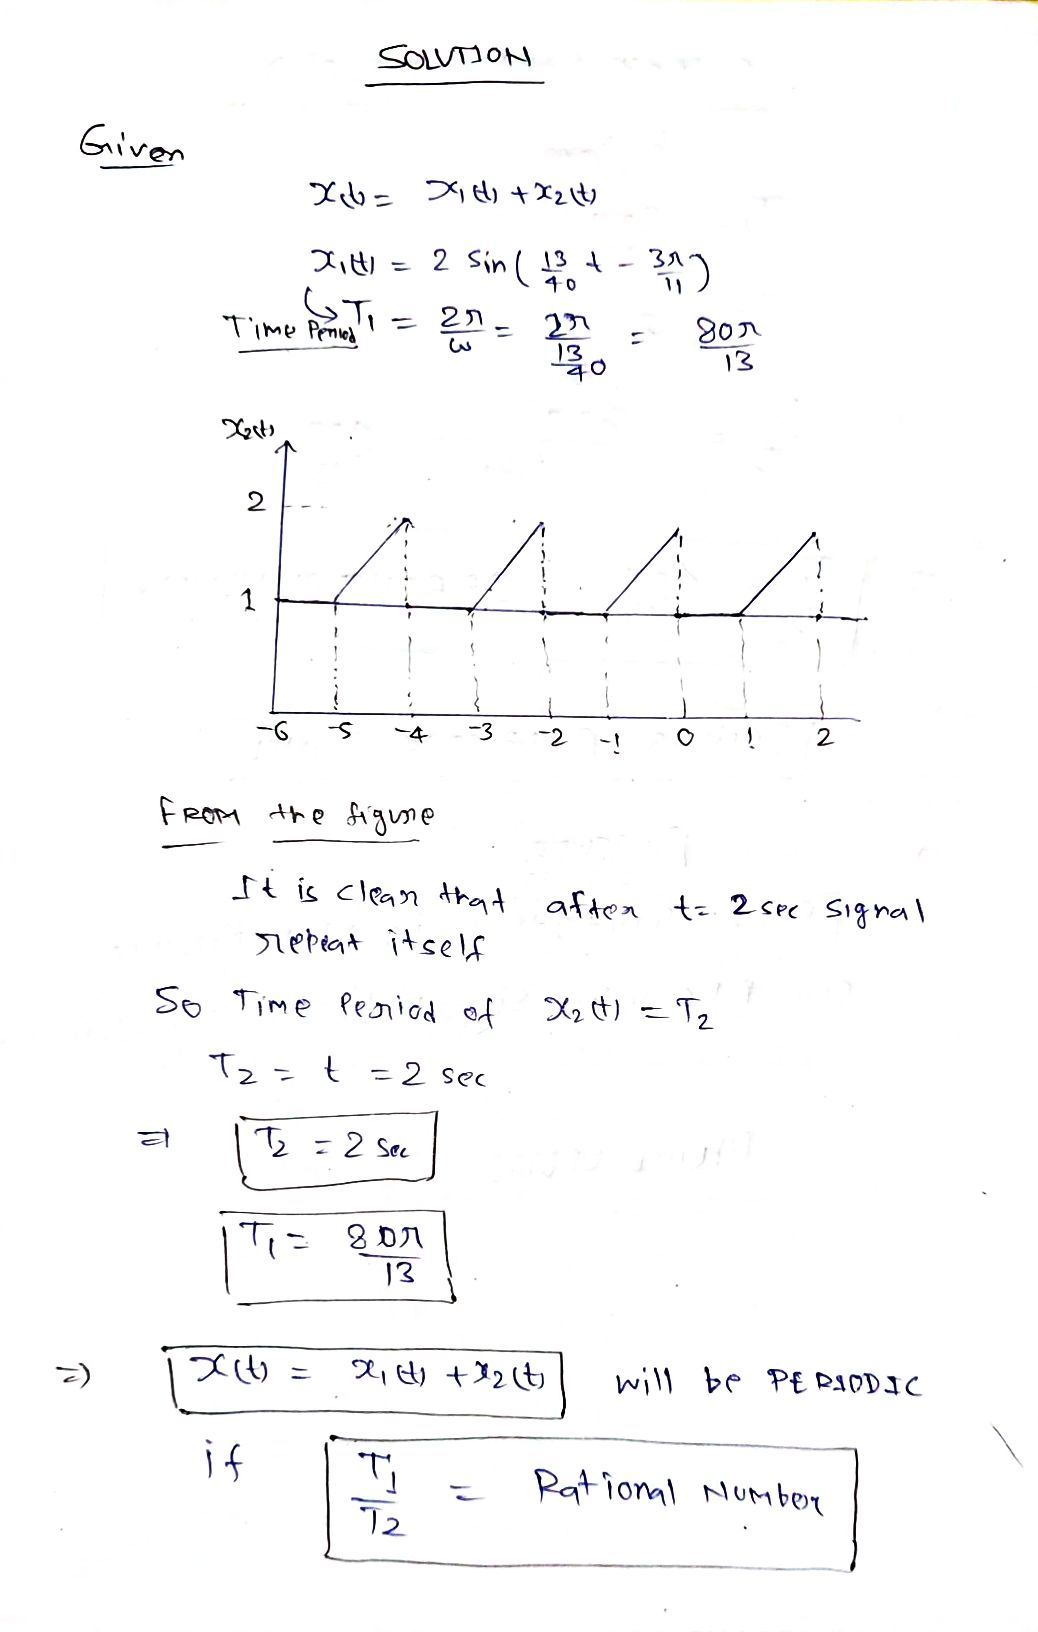 SOLUTION
Given
x(t) = x₁(t) + x₂(t)
x₁(t) = 2 sin( 13/40 t - 3π/11 )
Time Period T₁ = 2π/ω = 2π/(13/40) = 80π/13
x₂(t)
2
1
-6 -5 -4 -3 -2 -1 0 1 2
FROM the figure
It is clear that after t = 2 sec signal
repeat itself
So Time Period of x₂(t) = T₂
T₂ = t = 2 sec
⇒ T₂ = 2 sec
T₁ = 80π/13
⇒ x(t) = x₁(t) + x₂(t) will be PERIODIC
if T₁/T₂ = Rational Number